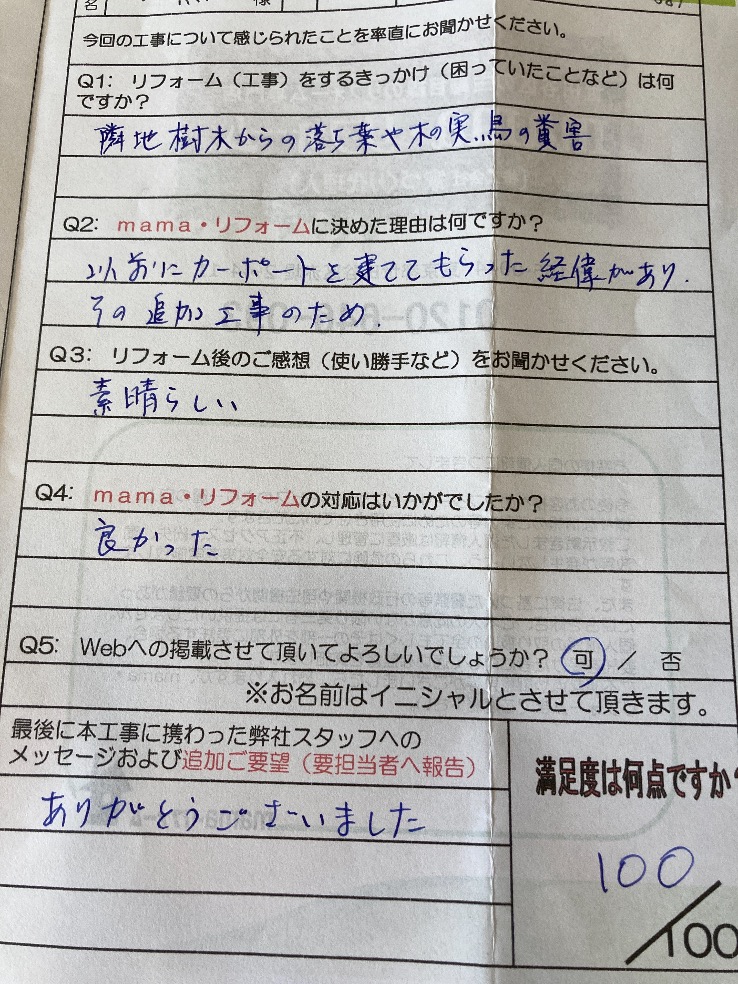 名
様
今回の工事について感じられたことを率直にお聞かせください。
Q1: リフォーム（工事）をするきっかけ（困っていたことなど）は何
ですか？
隣地樹木からの落ち葉や木の実、鳥の糞害
Q2: mama・リフォームに決めた理由は何ですか？
以前にカーポートを建ててもらった経緯があり、
その追加工事のため、
Q3: リフォーム後のご感想（使い勝手など）をお聞かせください。
素晴らしい
Q4: mama・リフォームの対応はいかがでしたか？
良かった
Q5: Webへの掲載させて頂いてよろしいでしょうか？ 可 / 否
※お名前はイニシャルとさせて頂きます。
最後に本工事に携わった弊社スタッフへの
メッセージおよび追加ご要望（要担当者へ報告）
ありがとうございました
満足度は何点ですか?
100
/100